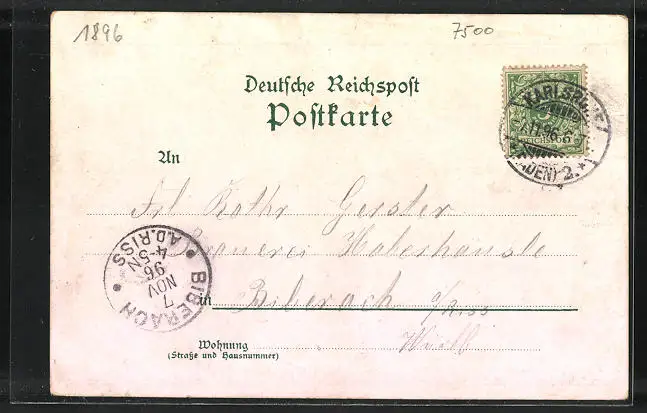 1896
7500
Deutsche Reichspost
Postkarte
KARLSRUHE
7.11.96.6-
(BADEN) 2.*
REICHSPOST
An
Frl Kathr Gerster
Brauerei Haberhäusle
BIBERACH A.D.RISS
7
NOV
96
4-5N
in Biberach a/Riss
Württ
Wohnung
(Straße und Hausnummer)